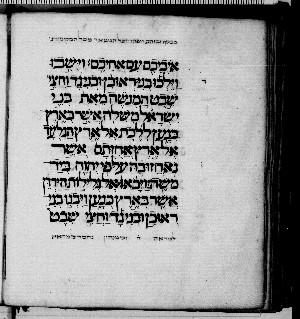 איביכם עם אחיכם וישבו
וילכו בני ראובן ובני גד וחצי
שבט המנשה מאת בני
ישראל משלה אשר בארץ
כנען ללכת אל ארץ הגלעד
אל ארץ אחזתם אשר
נאחזו בה על פי יהוה ביד
משה ויבאו אל גלילות הירדן
אשר בארץ כנען ויבנו בני
ראובן ובני גד וחצי שבט